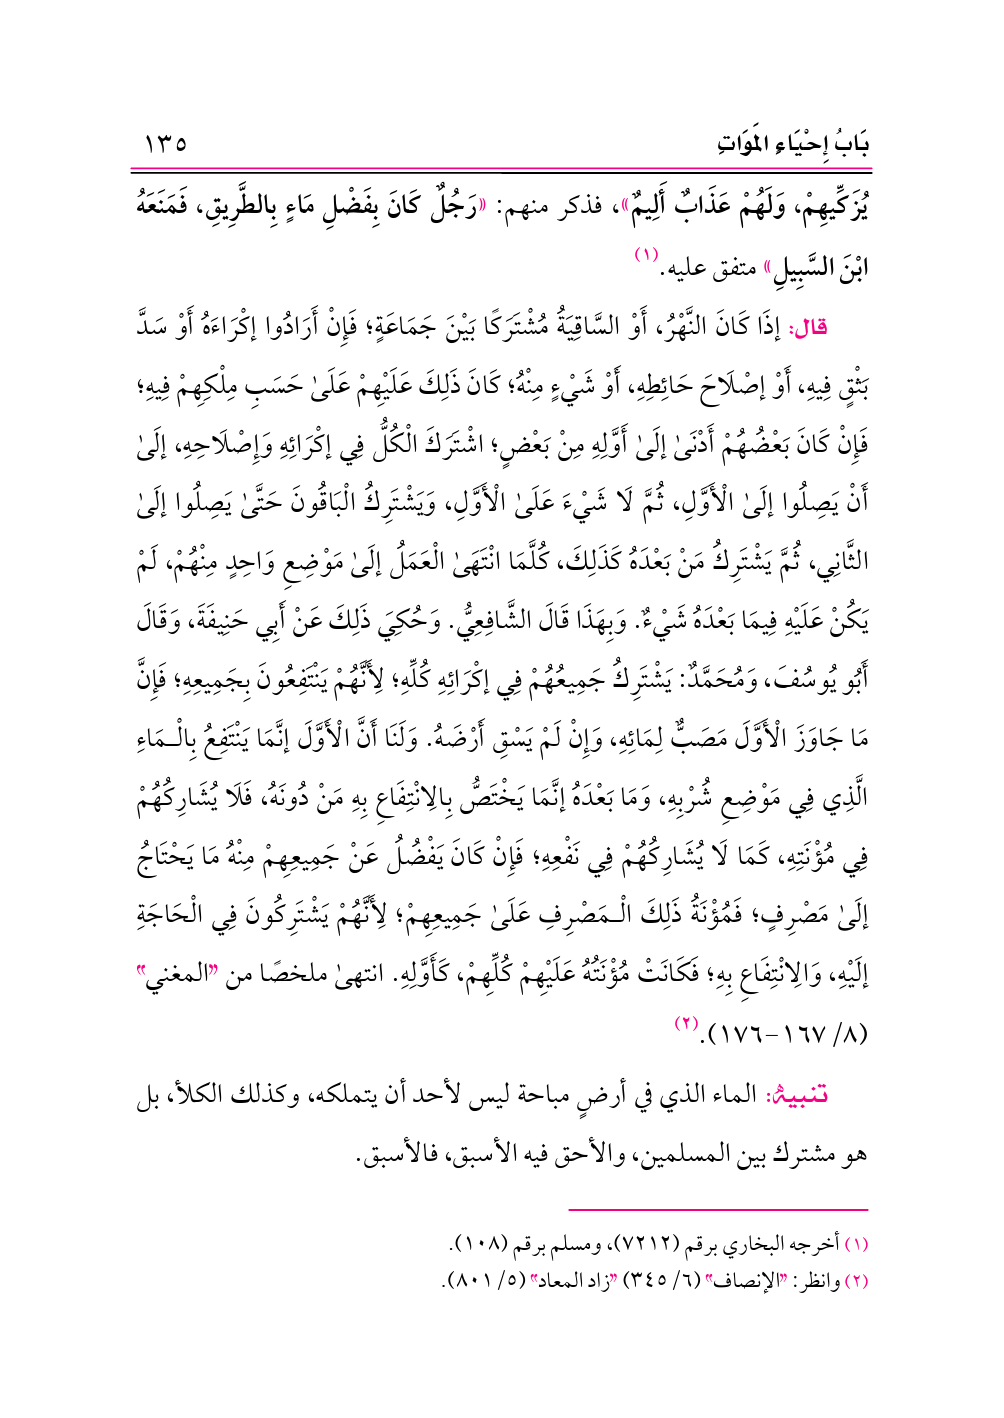 بَابُ إِحْيَاءِ المَوَاتِ ١٣٥
يُزَكِّيهِمْ، وَلَهُمْ عَذَابٌ أَلِيمٌ»، فذكر منهم: «رَجُلٌ كَانَ بِفَضْلِ مَاءٍ بِالطَّرِيقِ، فَمَنَعَهُ
ابْنَ السَّبِيلِ» متفق عليه.(١)
قال: إذَا كَانَ النَّهْرُ، أَوْ السَّاقِيَةُ مُشْتَرَكًا بَيْنَ جَمَاعَةٍ؛ فَإِنْ أَرَادُوا إكْرَاءَهُ أَوْ سَدَّ
بَثْقٍ فِيهِ، أَوْ إصْلَاحَ حَائِطِهِ، أَوْ شَيْءٍ مِنْهُ؛ كَانَ ذَلِكَ عَلَيْهِمْ عَلَىٰ حَسَبِ مِلْكِهِمْ فِيهِ؛
فَإِنْ كَانَ بَعْضُهُمْ أَدْنَىٰ إلَىٰ أَوَّلِهِ مِنْ بَعْضٍ؛ اشْتَرَكَ الْكُلُّ فِي إكْرَائِهِ وَإِصْلَاحِهِ، إلَىٰ
أَنْ يَصِلُوا إلَىٰ الْأَوَّلِ، ثُمَّ لَا شَيْءَ عَلَىٰ الْأَوَّلِ، وَيَشْتَرِكُ الْبَاقُونَ حَتَّىٰ يَصِلُوا إلَىٰ
الثَّانِي، ثُمَّ يَشْتَرِكُ مَنْ بَعْدَهُ كَذَلِكَ، كُلَّمَا انْتَهَىٰ الْعَمَلُ إلَىٰ مَوْضِعِ وَاحِدٍ مِنْهُمْ، لَمْ
يَكُنْ عَلَيْهِ فِيمَا بَعْدَهُ شَيْءٌ. وَبِهَذَا قَالَ الشَّافِعِيُّ. وَحُكِيَ ذَلِكَ عَنْ أَبِي حَنِيفَةَ، وَقَالَ
أَبُو يُوسُفَ، وَمُحَمَّدٌ: يَشْتَرِكُ جَمِيعُهُمْ فِي إكْرَائِهِ كُلِّهِ؛ لِأَنَّهُمْ يَنْتَفِعُونَ بِجَمِيعِهِ؛ فَإِنَّ
مَا جَاوَزَ الْأَوَّلَ مَصَبٌّ لِمَائِهِ، وَإِنْ لَمْ يَسْقِ أَرْضَهُ. وَلَنَا أَنَّ الْأَوَّلَ إنَّمَا يَنْتَفِعُ بِالْـمَاءِ
الَّذِي فِي مَوْضِعِ شُرْبِهِ، وَمَا بَعْدَهُ إنَّمَا يَخْتَصُّ بِالِانْتِفَاعِ بِهِ مَنْ دُونَهُ، فَلَا يُشَارِكُهُمْ
فِي مُؤْنَتِهِ، كَمَا لَا يُشَارِكُهُمْ فِي نَفْعِهِ؛ فَإِنْ كَانَ يَفْضُلُ عَنْ جَمِيعِهِمْ مِنْهُ مَا يَحْتَاجُ
إلَىٰ مَصْرِفٍ؛ فَمُؤْنَةُ ذَلِكَ الْـمَصْرِفِ عَلَىٰ جَمِيعِهِمْ؛ لِأَنَّهُمْ يَشْتَرِكُونَ فِي الْحَاجَةِ
إلَيْهِ، وَالِانْتِفَاعِ بِهِ؛ فَكَانَتْ مُؤْنَتُهُ عَلَيْهِمْ كُلِّهِمْ، كَأَوَّلِهِ. انتهىٰ ملخصًا من "المغني"
(٨/ ١٦٧-١٧٦).(٢)
تنبيهٌ: الماء الذي في أرضٍ مباحة ليس لأحد أن يتملكه، وكذلك الكلأ، بل
هو مشترك بين المسلمين، والأحق فيه الأسبق، فالأسبق.
(١) أخرجه البخاري برقم (٧٢١٢)، ومسلم برقم (١٠٨).
(٢) وانظر: "الإنصاف" (٦/ ٣٤٥) "زاد المعاد" (٥/ ٨٠١).